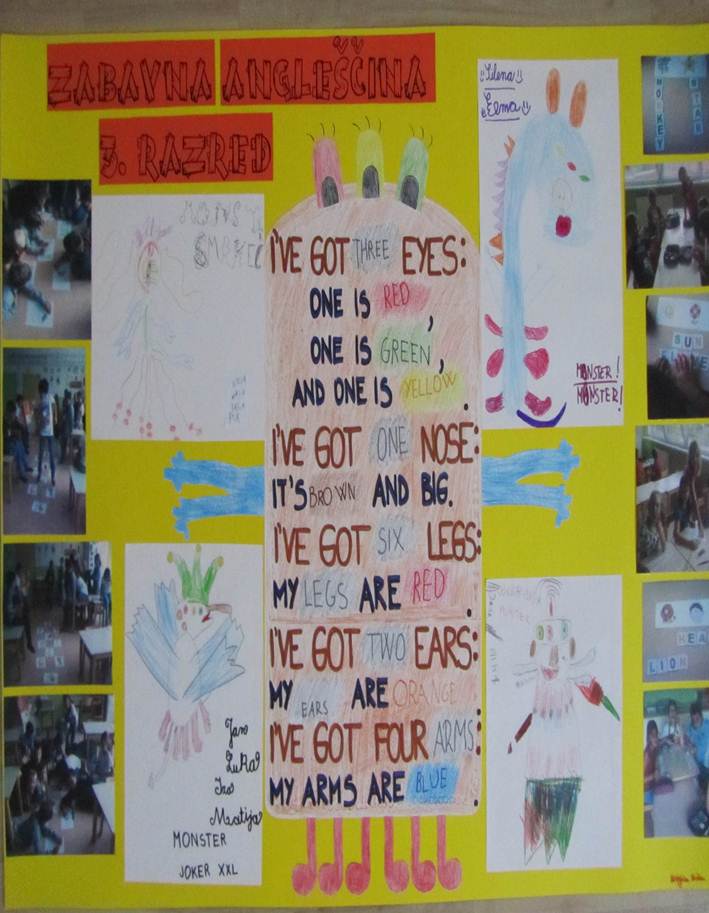 ZABAVNA ANGLEŠČINA
3. RAZRED
I'VE GOT THREE EYES:
ONE IS RED,
ONE IS GREEN,
AND ONE IS YELLOW.
I'VE GOT ONE NOSE:
IT'S BROWN AND BIG.
I'VE GOT SIX LEGS:
MY LEGS ARE RED.
I'VE GOT TWO EARS:
MY EARS ARE ORANGE.
I'VE GOT FOUR ARMS:
MY ARMS ARE BLUE.
Elma
MONSTER!
MONSTER!
Jan
Matija
MONSTER
JOKER XXL
MONKEY
STAR
SUN
LION